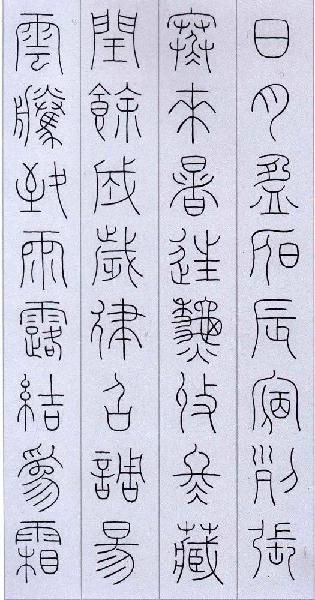 日月盈昃辰宿列張
寒來暑往秋收冬藏
閏餘成歲律召調昜
雲騰致雨露結爲霜